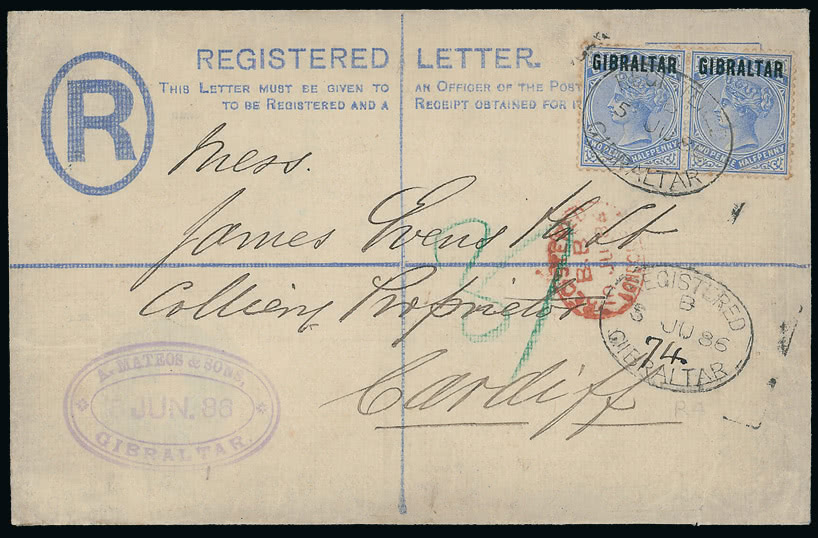 REGISTERED LETTER.
THIS LETTER MUST BE GIVEN TO AN OFFICER OF THE POST
TO BE REGISTERED AND A RECEIPT OBTAINED FOR I
R
GIBRALTAR GIBRALTAR
TWO PENCE HALFPENNY
HALFPENNY
5 JU
GIBRALTAR
Mess.
James Evens
Colliery Proprietor
Cardiff
REGISTERED
B
5 JU 86
GIBRALTAR
74
REGISTERED
LONDON
A. MATEOS & SONS,
JUN. 86
GIBRALTAR.